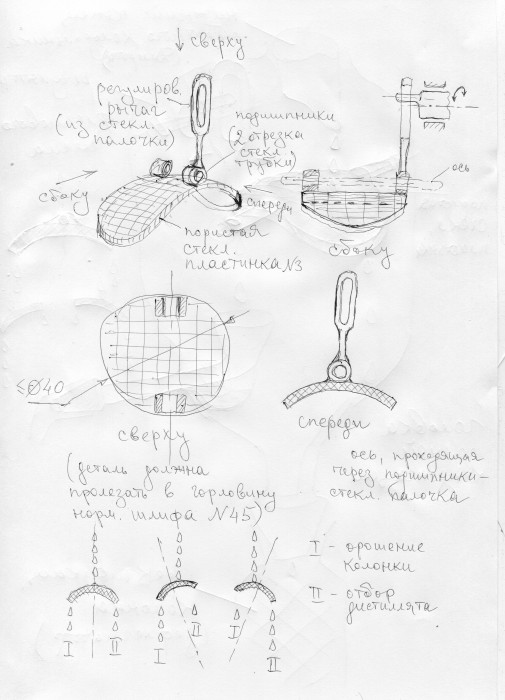 сверху
регулиров.
рычаг
(из стекл.
палочки)
подшипники
(2 отрезка
стекл.
трубки)
ось
сбоку
спереди
сбоку
пористая
стекл.
пластинка №3
≤⌀40
сверху
(деталь должна
пролезать в горловину
норм. шлифа №45)
спереди
ось, проходящая
через подшипники-
стекл. палочка
I - орошение
колонки
II - отбор
дистилята
I
II
I
II
I
II